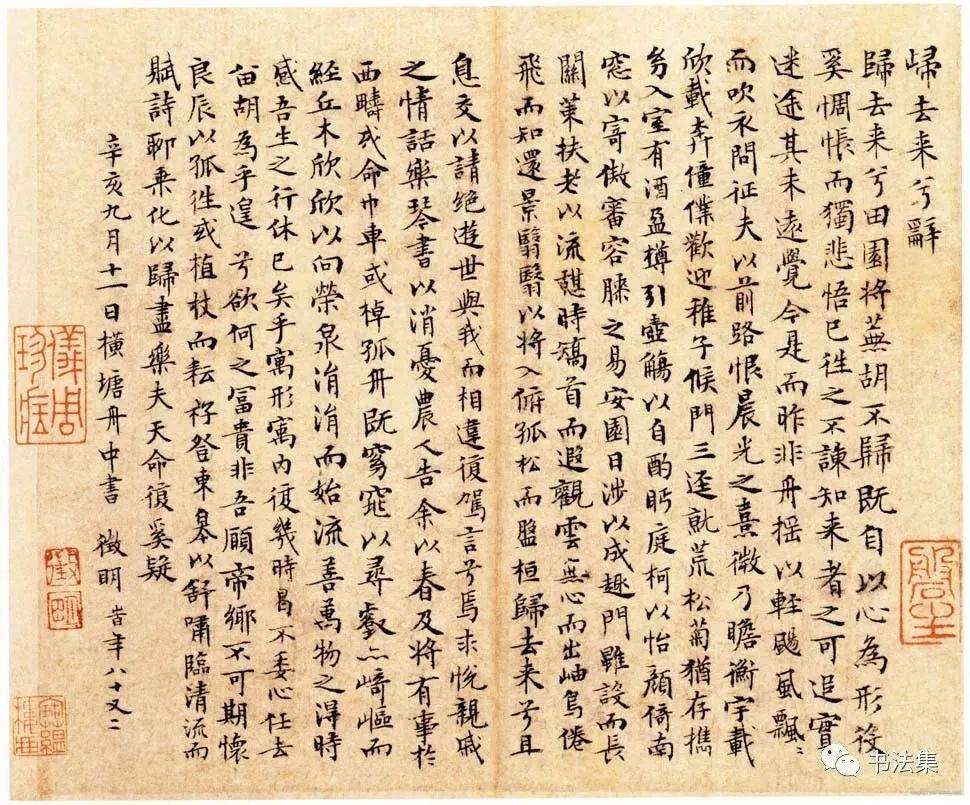 歸去来兮辭
歸去来兮田園将蕪胡不歸既自以心為形役
奚惆悵而獨悲悟已往之不諫知来者之可追實
迷途其未遠覺今是而昨非舟揺以輕颺風飄〻
而吹衣問征夫以前路恨晨光之熹微乃瞻衡宇載
欣載奔僮僕歡迎稚子候門三迳就荒松菊猶存擕
㓜入室有酒盈樽引壺觴以自酌眄庭柯以怡顔倚南
窓以寄傲審容膝之易安園日涉以成趣門雖設而長
關策扶老以流憇時矯首而遐觀雲無心而出岫鳥倦
飛而知還景翳翳以将入俯孤松而盤桓歸去来兮且
息交以請絶遊世與我而相違復駕言兮焉求悅親戚
之情話樂琴書以消憂農人告余以春及将有事於
西疇或命巾車或棹孤舟既窈窕以尋壑亦崎嶇而
経丘木欣欣以向榮泉涓涓而始流善萬物之得時
感吾生之行休已矣乎寓形寓内復幾時曷不委心任去
畱胡為乎遑兮欲何之冨貴非吾願帝郷不可期懷
良辰以孤徃或植杖而耘耔登東皋以舒嘯臨清流而
賦詩聊乗化以歸盡樂夫天命復奚疑
辛亥九月十一日橫塘舟中書 徵明 旹年八十又二
儀周珍藏
徵明
书法集